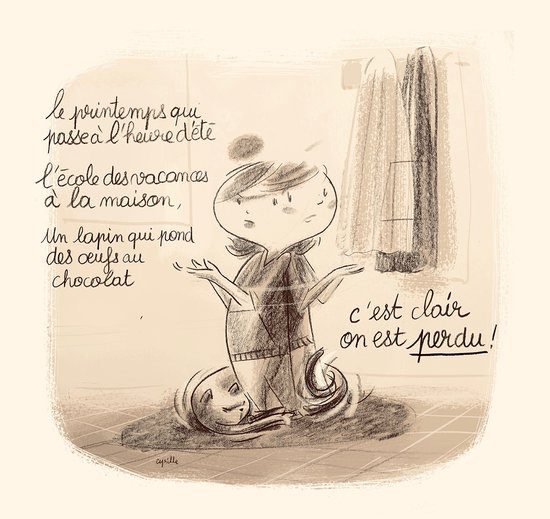 le printemps qui
passe à l'heure d'été
l'école des vacances
à la maison,
un lapin qui pond
des œufs au
chocolat
c'est clair
on est perdu !
cyrille